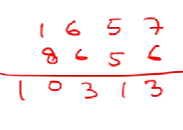 1 6 5 7
8 6 5 6
1 0 3 1 3